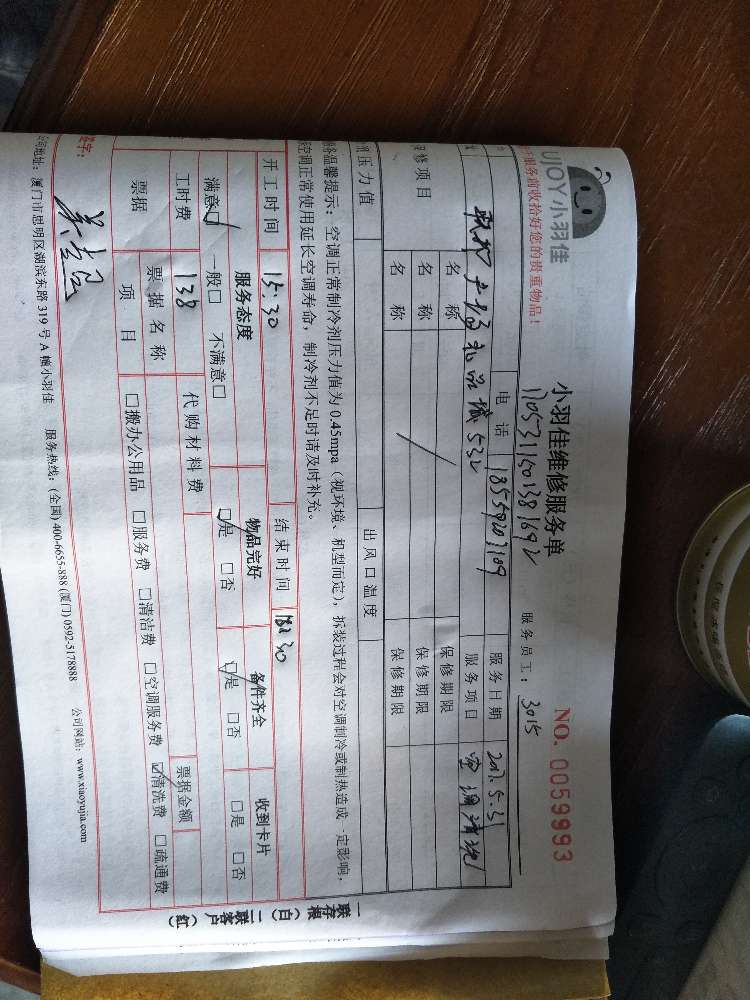 UJOY小羽佳
服务前收拾好您的贵重物品!
小羽佳维修服务单
NO. 00599993
1705311501381692
服务员工: 3015
电话 18559203109 服务日期 2017.5.31
532 服务项目 空调清洗
修项目 名称 保修期限
名称 保修期限
名称 保修期限
压力值 出风口温度
温馨提示: 空调正常制冷剂压力值为 0.45mpa (视环境、机型而定), 拆装过程会对空调制冷或制热造成一定影响,
空调正常使用延长空调寿命, 制冷剂不足时请及时补充。
开工时间 15:30 结束时间 18:30
服务态度 物品完好 备件齐全 收到卡片
满意☑ 一般□ 不满意□ ☑是 □否 ☑是 □否 □是 □否
工时费 138 代购材料费 票据金额
票据 票据名称
项目 □搬办公用品 □服务费 □清洁费 □空调服务费 ☑清洗费 □疏通费
签字:
地址: 厦门市思明区湖滨东路 319 号 A 幢小羽佳 服务热线: (全国) 400-6655-888 (厦门) 0592-5178888 公司网站: www.xiaoyujia.com
一联存根(白) 二联客户(红)